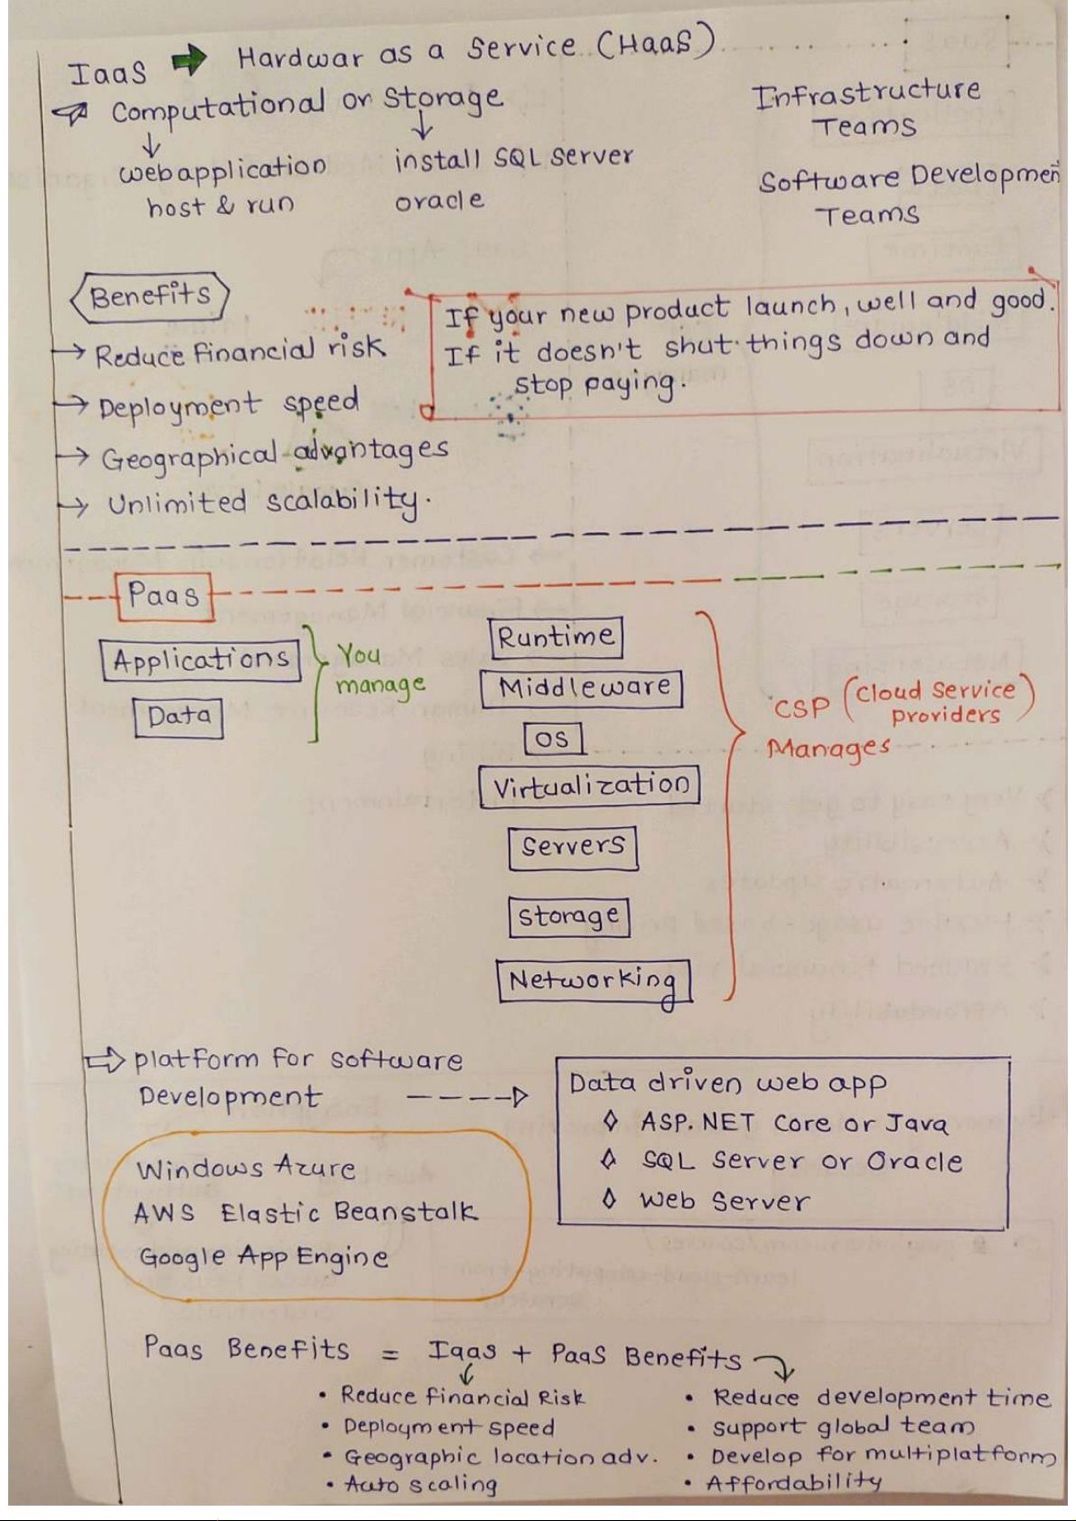 IaaS → Hardwar as a Service (HaaS)
Computational or Storage
Infrastructure
Teams
↓ ↓
web application install SQL server
host & run oracle
Software Developmen
Teams
Benefits
→ Reduce financial risk
→ Deployment speed
→ Geographical advantages
→ Unlimited scalability.
If your new product launch, well and good.
If it doesn't shut things down and
stop paying.
Paas
Applications
Data
You
manage
Runtime
Middleware
OS
Virtualization
Servers
Storage
Networking
CSP (Cloud Service
providers)
Manages
⇒ platform for software
Development
Data driven web app
◊ ASP.NET Core or Java
◊ SQL Server or Oracle
◊ Web Server
Windows Azure
AWS Elastic Beanstalk
Google App Engine
Paas Benefits = Iaas + PaaS Benefits
• Reduce financial Risk
• Deployment speed
• Geographic location adv.
• Auto scaling
• Reduce development time
• Support global team
• Develop for multiplatform
• Affordability